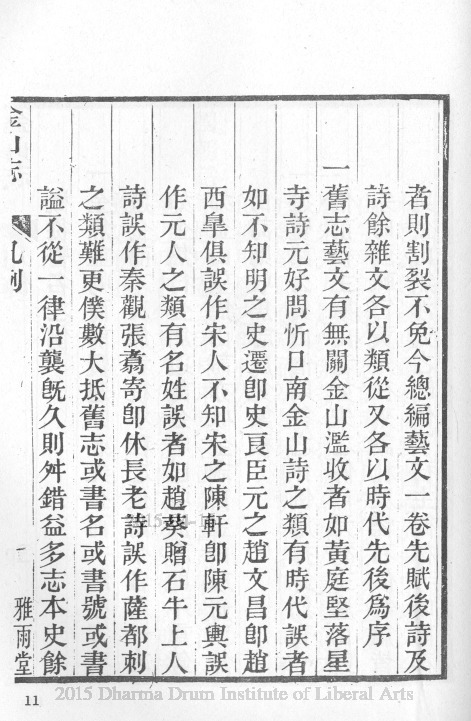 者則割裂不免今總編藝文一卷先賦後詩及
詩餘雜文各以類從又各以時代先後爲序
一舊志藝文有無關金山濫收者如黃庭堅落星
寺詩元好問忻口南金山詩之類有時代誤者
如不知明之史遷卽史良臣元之趙文昌卽趙
西臯俱誤作宋人不知宋之陳軒卽陳元輿誤
作元人之類有名姓誤者如趙葵贈石牛上人
詩誤作秦觀張翥寄卽休長老詩誤作薩都刺
之類難更僕數大抵舊志或書名或書號或書
謚不從一律沿襲旣久則舛錯益多志本史餘
金山志 凡例
雅雨堂
11
2015 Dharma Drum Institute of Liberal Arts